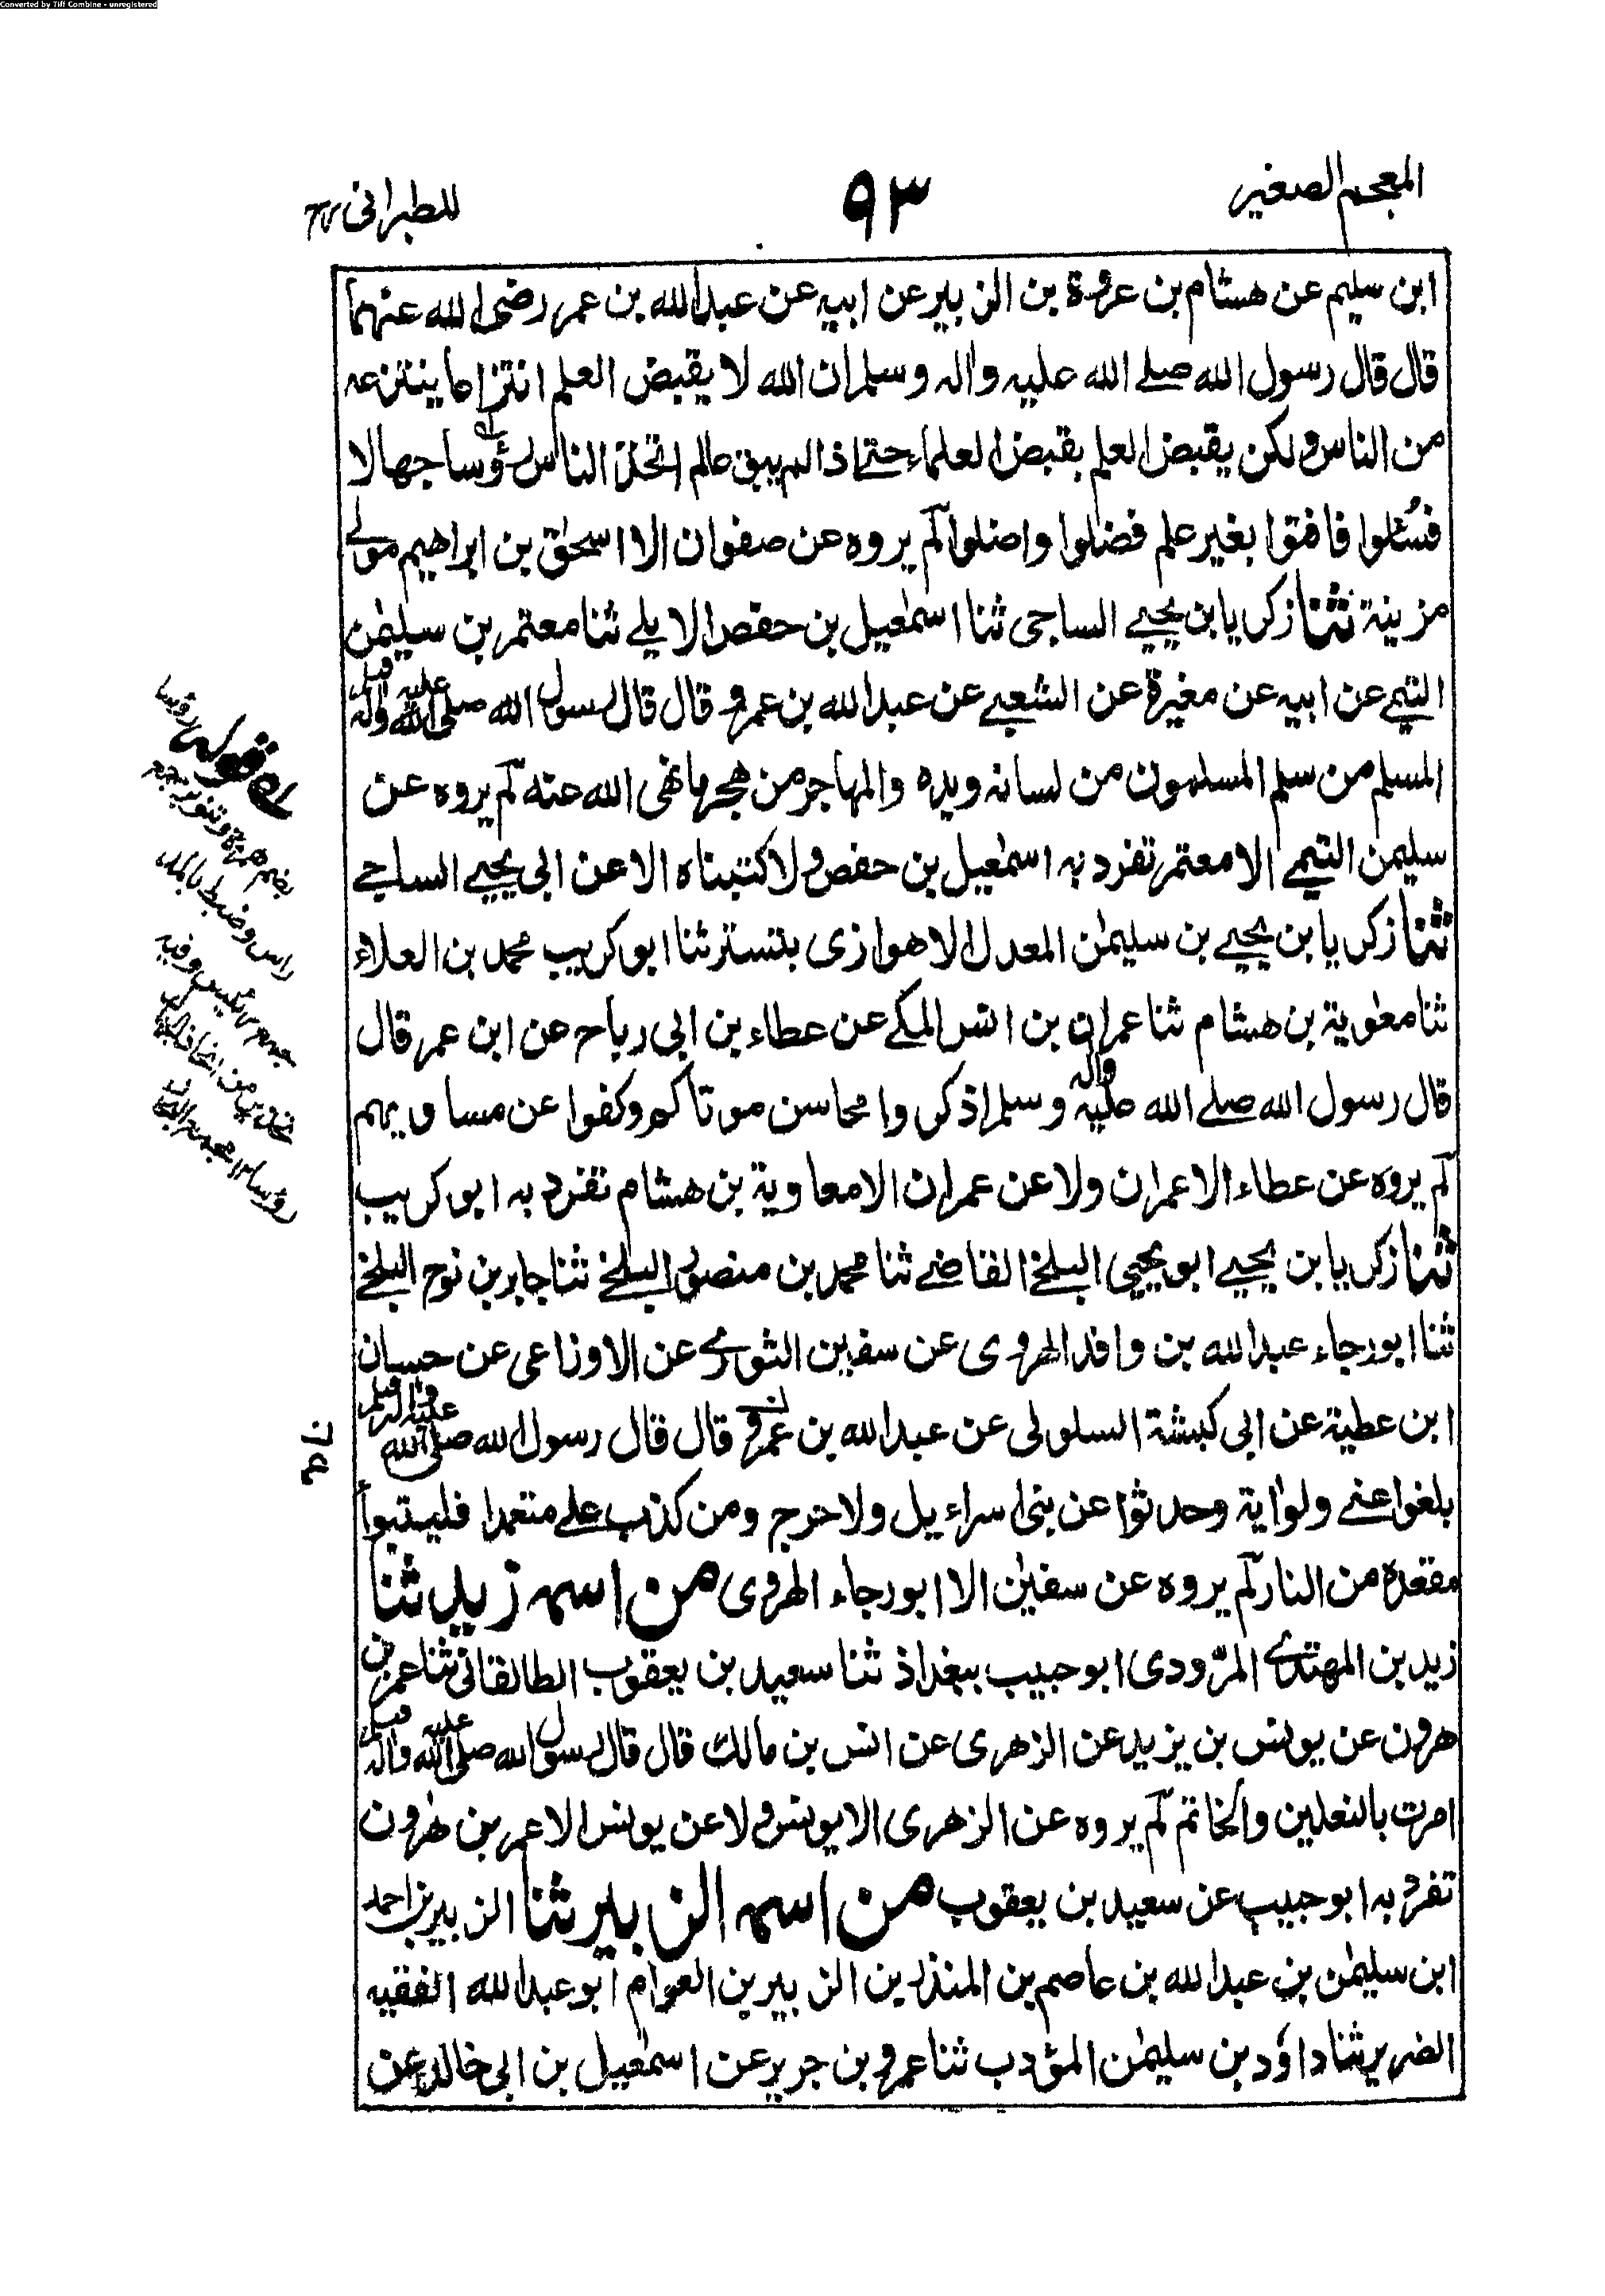 Converted by Tiff Combine - unregistered
المعجم الصغير
٩٣
للطبرانی
ابن سليم عن هشام بن عروة بن الزبير عن ابيه عن عبدالله بن عمر رضی الله عنهما
قال قال رسول الله صلے الله عليه واله وسلم ان الله لا يقبض العلم انتزاعا ينتزعه
من الناس ولكن يقبض العلم بقبض العلماء حتے اذا لم يبق عالم اتخذ الناس رؤسا جهالا
فسُئلوا فافتوا بغير علم فضلوا واضلوا لم يروه عن صفوان الا اسحٰق بن ابراهيم مولے
مزينة ثنا زكريا بن يحيے الساجی ثنا اسمٰعيل بن حفص الايلے ثنا معتمر بن سليمٰن
التيمے عن ابيه عن مغيرة عن الشعبے عن عبدالله بن عمرو قال قال رسول الله صلى الله عليه واله وسلم
المسلم من سلم المسلمون من لسانه ويده والمهاجر من هجر ما نهى الله عنه لم يروه عن
سليمن التيمے الا معتمر تفرد به اسمٰعيل بن حفص ولا كتبناه الا عن ابی يحيے الساجے
ثنا زكريا بن يحيے بن سليمٰن المعدل الاهوازی بتستر ثنا ابو كريب محمد بن العلاء
ثنا معٰوية بن هشام ثنا عمران بن انس المكے عن عطاء بن ابی رباح عن ابن عمر قال
قال رسول الله صلے الله عليه واله وسلم اذكروا محاسن موتاكم وكفوا عن مساويهم
لم يروه عن عطاء الا عمران ولا عن عمران الا معاوية بن هشام تفرد به ابو كريب
ثنا زكريا بن يحيے ابو يحيى البلخے القاضے ثنا محمد بن منصور البلخے ثنا جابر بن نوح البلخے
ثنا ابو رجاء عبدالله بن واقد الهروی عن سفين الثوری عن الاوزاعی عن حسان
ابن عطية عن ابی كبشة السلولی عن عبدالله بن عمرو قال قال رسول الله صلى الله عليه واله وسلم
بلغوا عنے ولو اية وحدثوا عن بنی اسراءيل ولا حرج ومن كذب علے متعمدا فليتبوأ
مقعده من النار لم يروه عن سفيٰن الا ابو رجاء الهروی من اسمه زيد ثنا
زيد بن المهتدے المرّودی ابو حبيب ببغداذ ثنا سعيد بن يعقوب الطالقانی ثنا عمر بن
هرون عن يونس بن يزيد عن الزهری عن انس بن مالك قال قال رسول الله صلى الله عليه واله وسلم
امرت بالنعلين والخاتم لم يروه عن الزهری الا يونس ولا عن يونس الا عمر بن هٰرون
تفرد به ابو حبيب عن سعيد بن يعقوب من اسمه الزبير ثنا الزبير بن احمد
ابن سليمٰن بن عبدالله بن عاصم بن المنذر بن الزبير بن العوام ابو عبدالله الفقيه
الضرير ثنا داؤد بن سليمٰن المؤدب ثنا عمرو بن جرير عن اسمٰعيل بن ابی خالد عن
قوله رؤسا
بضم همزة وتنوين جمع
راس وضبط بالمد
جمع رئيس وفيه